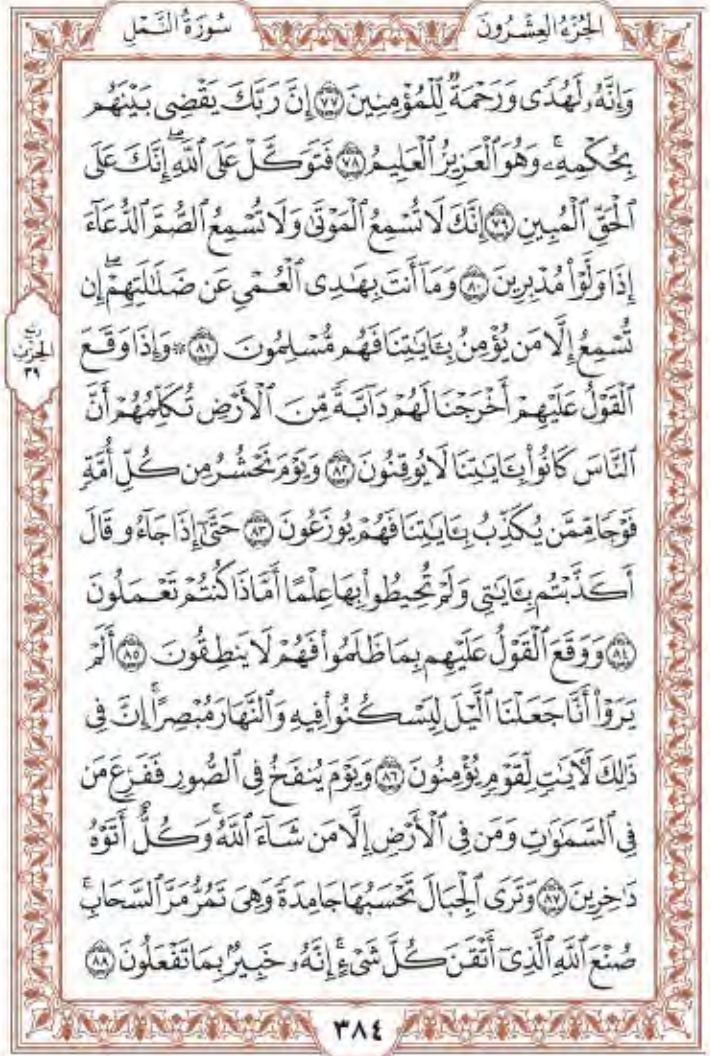 الجُزْءُ العِشْرُونَ
سُورَةُ النَّمْلِ
وَإِنَّهُۥ لَهُدٗى وَرَحۡمَةٞ لِّلۡمُؤۡمِنِينَ ٧٧ إِنَّ رَبَّكَ يَقۡضِي بَيۡنَهُم
بِحُكۡمِهِۦۚ وَهُوَ ٱلۡعَزِيزُ ٱلۡعَلِيمُ ٧٨ فَتَوَكَّلۡ عَلَى ٱللَّهِۖ إِنَّكَ عَلَى
ٱلۡحَقِّ ٱلۡمُبِينِ ٧٩ إِنَّكَ لَا تُسۡمِعُ ٱلۡمَوۡتَىٰ وَلَا تُسۡمِعُ ٱلصُّمَّ ٱلدُّعَآءَ
إِذَا وَلَّوۡاْ مُدۡبِرِينَ ٨٠ وَمَآ أَنتَ بِهَٰدِي ٱلۡعُمۡيِ عَن ضَلَٰلَتِهِمۡۖ إِن
تُسۡمِعُ إِلَّا مَن يُؤۡمِنُ بِـَٔايَٰتِنَا فَهُم مُّسۡلِمُونَ ٨١ ۞ وَإِذَا وَقَعَ
ربع
الحزب
٣٩
ٱلۡقَوۡلُ عَلَيۡهِمۡ أَخۡرَجۡنَا لَهُمۡ دَآبَّةٗ مِّنَ ٱلۡأَرۡضِ تُكَلِّمُهُمۡ أَنَّ
ٱلنَّاسَ كَانُواْ بِـَٔايَٰتِنَا لَا يُوقِنُونَ ٨٢ وَيَوۡمَ نَحۡشُرُ مِن كُلِّ أُمَّةٖ
فَوۡجٗا مِّمَّن يُكَذِّبُ بِـَٔايَٰتِنَا فَهُمۡ يُوزَعُونَ ٨٣ حَتَّىٰٓ إِذَا جَآءُو قَالَ
أَكَذَّبۡتُم بِـَٔايَٰتِي وَلَمۡ تُحِيطُواْ بِهَا عِلۡمًا أَمَّاذَا كُنتُمۡ تَعۡمَلُونَ
٨٤ وَوَقَعَ ٱلۡقَوۡلُ عَلَيۡهِم بِمَا ظَلَمُواْ فَهُمۡ لَا يَنطِقُونَ ٨٥ أَلَمۡ
يَرَوۡاْ أَنَّا جَعَلۡنَا ٱلَّيۡلَ لِيَسۡكُنُواْ فِيهِ وَٱلنَّهَارَ مُبۡصِرًاۚ إِنَّ فِي
ذَٰلِكَ لَأٓيَٰتٖ لِّقَوۡمٖ يُؤۡمِنُونَ ٨٦ وَيَوۡمَ يُنفَخُ فِي ٱلصُّورِ فَفَزِعَ مَن
فِي ٱلسَّمَٰوَٰتِ وَمَن فِي ٱلۡأَرۡضِ إِلَّا مَن شَآءَ ٱللَّهُۚ وَكُلٌّ أَتَوۡهُ
دَٰخِرِينَ ٨٧ وَتَرَى ٱلۡجِبَالَ تَحۡسَبُهَا جَامِدَةٗ وَهِيَ تَمُرُّ مَرَّ ٱلسَّحَابِۚ
صُنۡعَ ٱللَّهِ ٱلَّذِيٓ أَتۡقَنَ كُلَّ شَيۡءٍۚ إِنَّهُۥ خَبِيرُۢ بِمَا تَفۡعَلُونَ ٨٨
٣٨٤